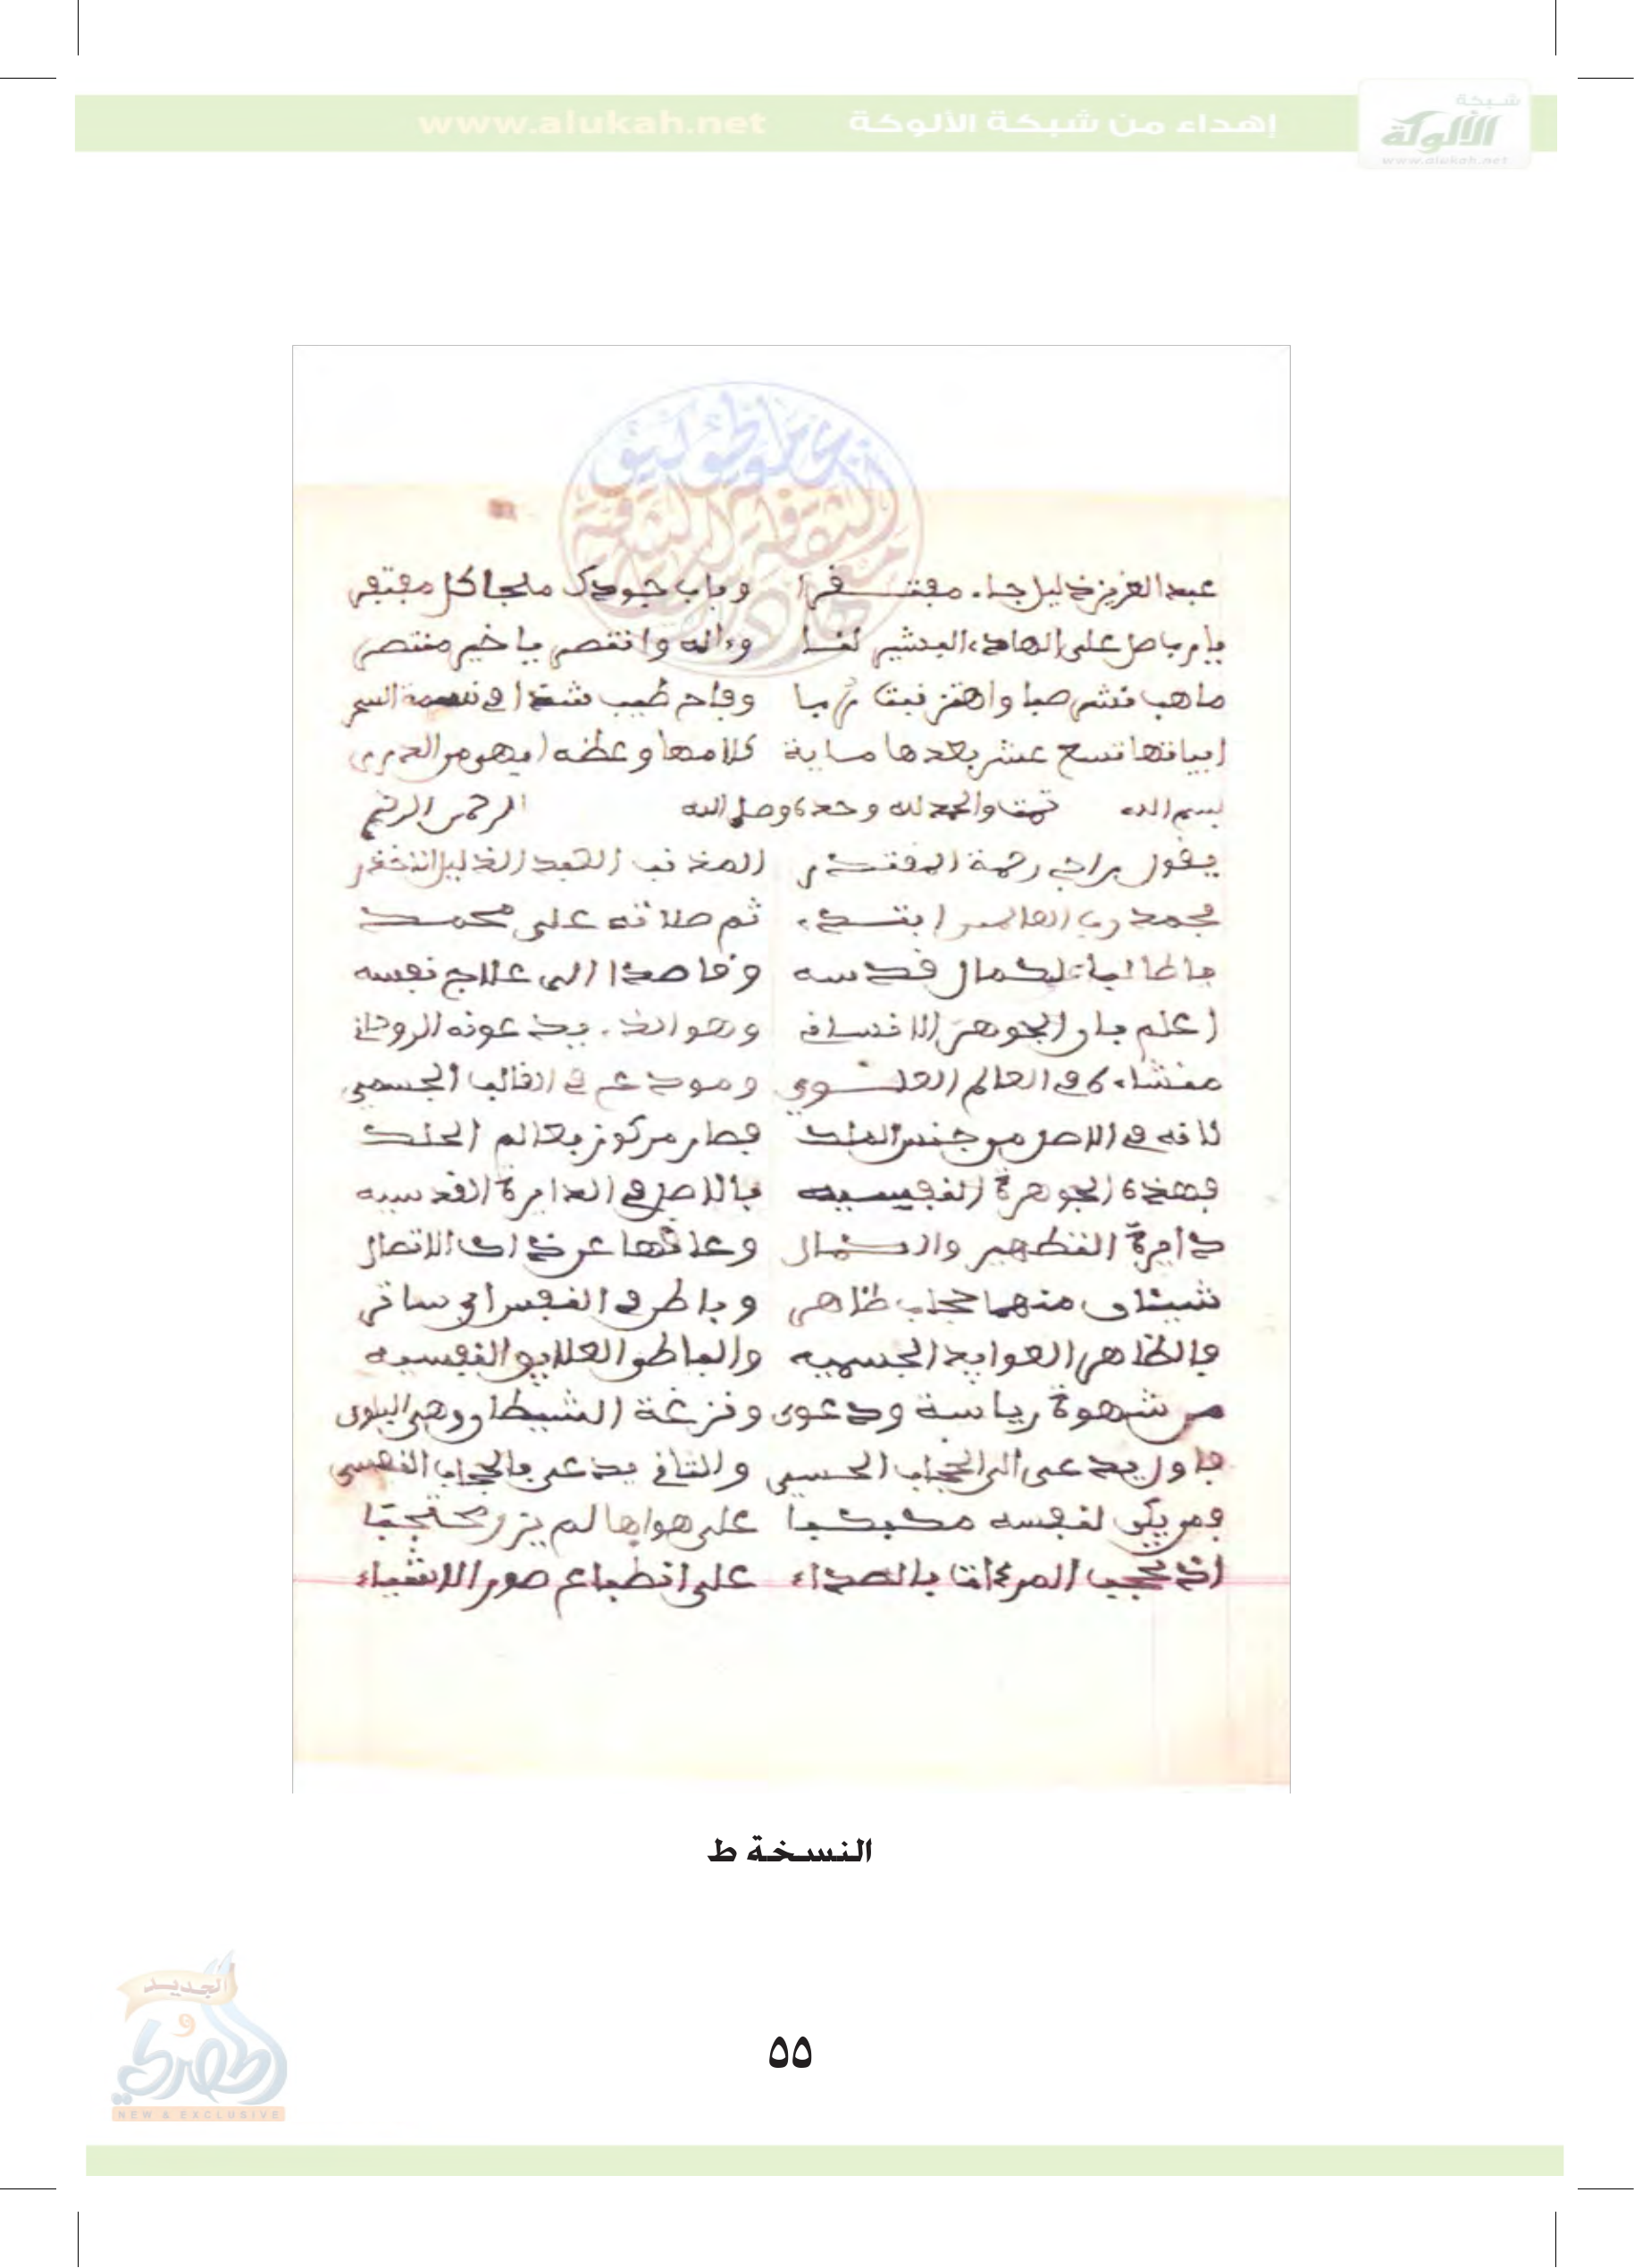 شبكة
الألوكة
www.alukah.net
إهداء من شبكة الألوكة www.alukah.net
عبد العزيز ذليل جاء مفتقرا وباب جودك ملجا كل مفتقر
يا رب صل على الهادي البشير لنا وءاله وانتصر يا خير منتصر
ما هب نشر صبا واهتز نبت ربا وفاح طيب شذا في نسمة السحر
ابياتها تسع عشر بعدها ماية كلامها وعظه ابهى من الدرر
بسم الله تمت والحمد لله وحده وصلى الله الرحمن الرحيم
يقول راجي رحمة المقتدر المذنب العبد الذليل الاخضر
بحمد رب العالمين ابتدء ثم صلاته على محمد
يا طالبا لكمال قدسه وقاصدا الى علاج نفسه
اعلم بان الجوهر الانساني وهو الذي يدعونه الروحاني
منشاءه في العالم العلوي ومودع في القالب الجسمي
لانه في الاصل من جنس الملك فصار مركوز بعالم الحلك
فهذه الجوهرة النفيسيه بالاصل في الدايرة القدسيه
دايرة التطهير والكمال وعاقها عن ذاك الاتصال
شيئان منهما حجاب ظاهر وباطن في النفس اي ساتر
فالظاهر العوايد الجسميه والباطن العلايق النفسيه
من شهوة رياسة ودعوى ونزغة الشيطان وهي البلوى
فاول يدعى الحجاب الحسي والثاني يدعى بالحجاب النفسي
فمن يكن لنفسه مكبكبا على هواها لم يزل محتجبا
اذ تحجب المرءات بالصداء على انطباع صور الاشياء
النسخة ط
الجديد
و
الحصري
NEW & EXCLUSIVE
٥٥